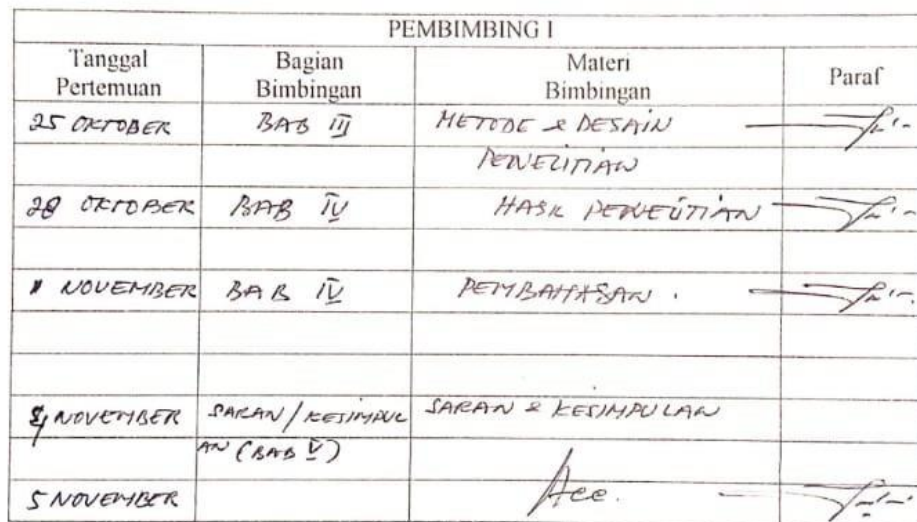 PEMBIMBING I
Tanggal Pertemuan Bagian Bimbingan Materi Bimbingan Paraf
25 OKTOBER BAB III METODE & DESAIN
PENELITIAN
28 OKTOBER BAB IV HASIL PENELITIAN
NOVEMBER BAB IV PEMBAHASAN .
NOVEMBER SARAN / KESIMPUL SARAN & KESIMPULAN
AN (BAB V)
5 NOVEMBER Acc.